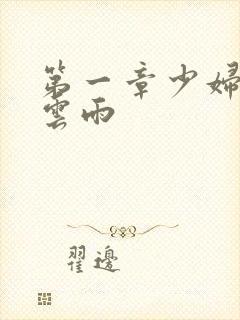 第一章少婦
雲雨
翟邊